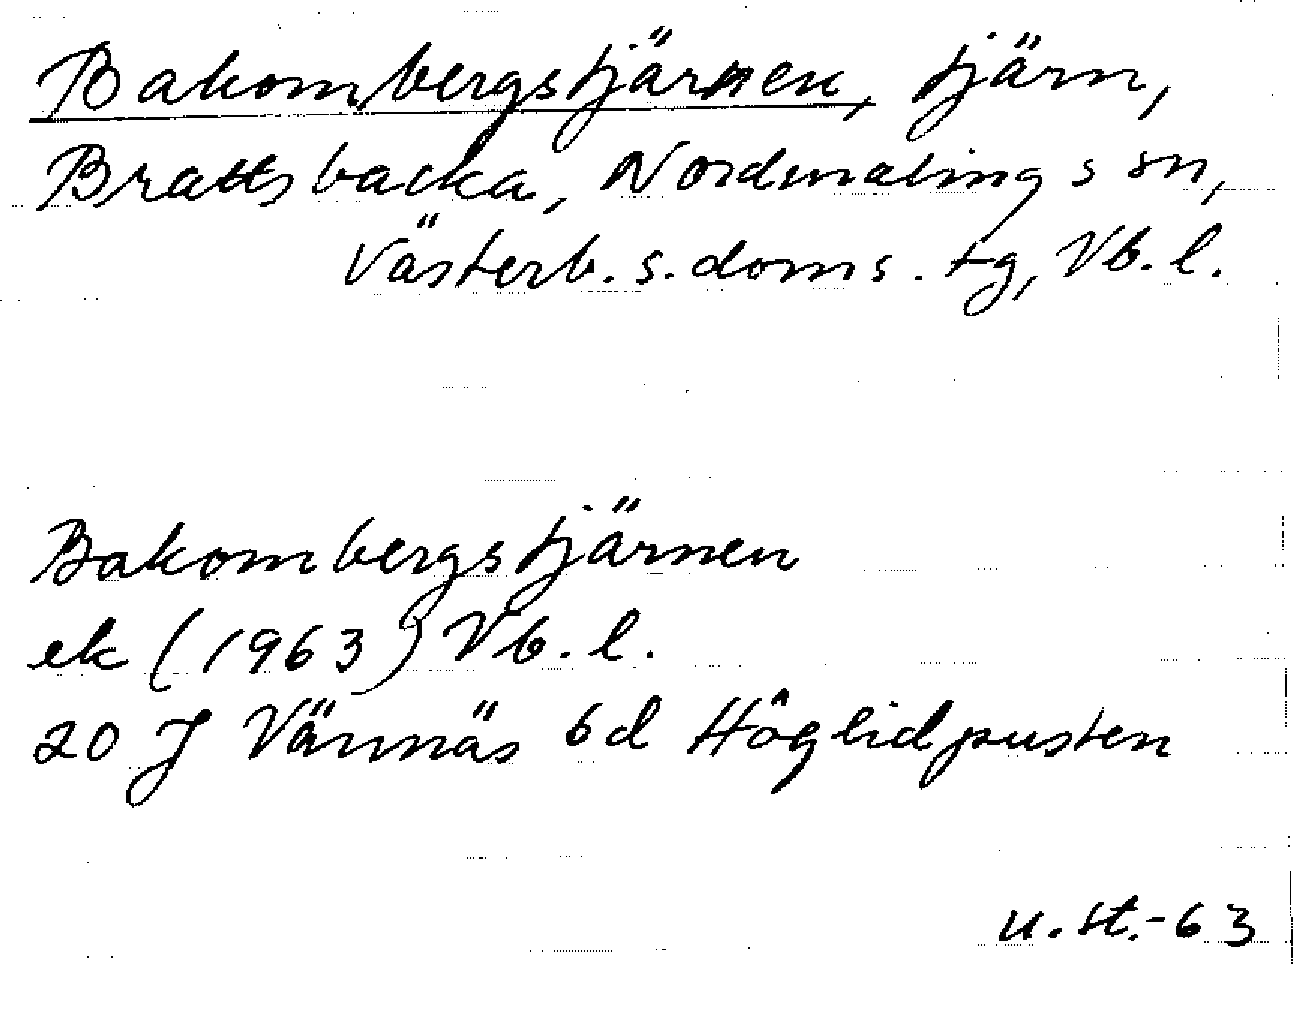 Bakombergstjärnen, tjärn,
Brattsbacka, Nordmalings sn,
Västerb. s. doms. tg, Vb. l.
Bakombergstjärnen
ek (1963) Vb. l.
20 J Vännäs 6d Höglidpusten
u. st.-63